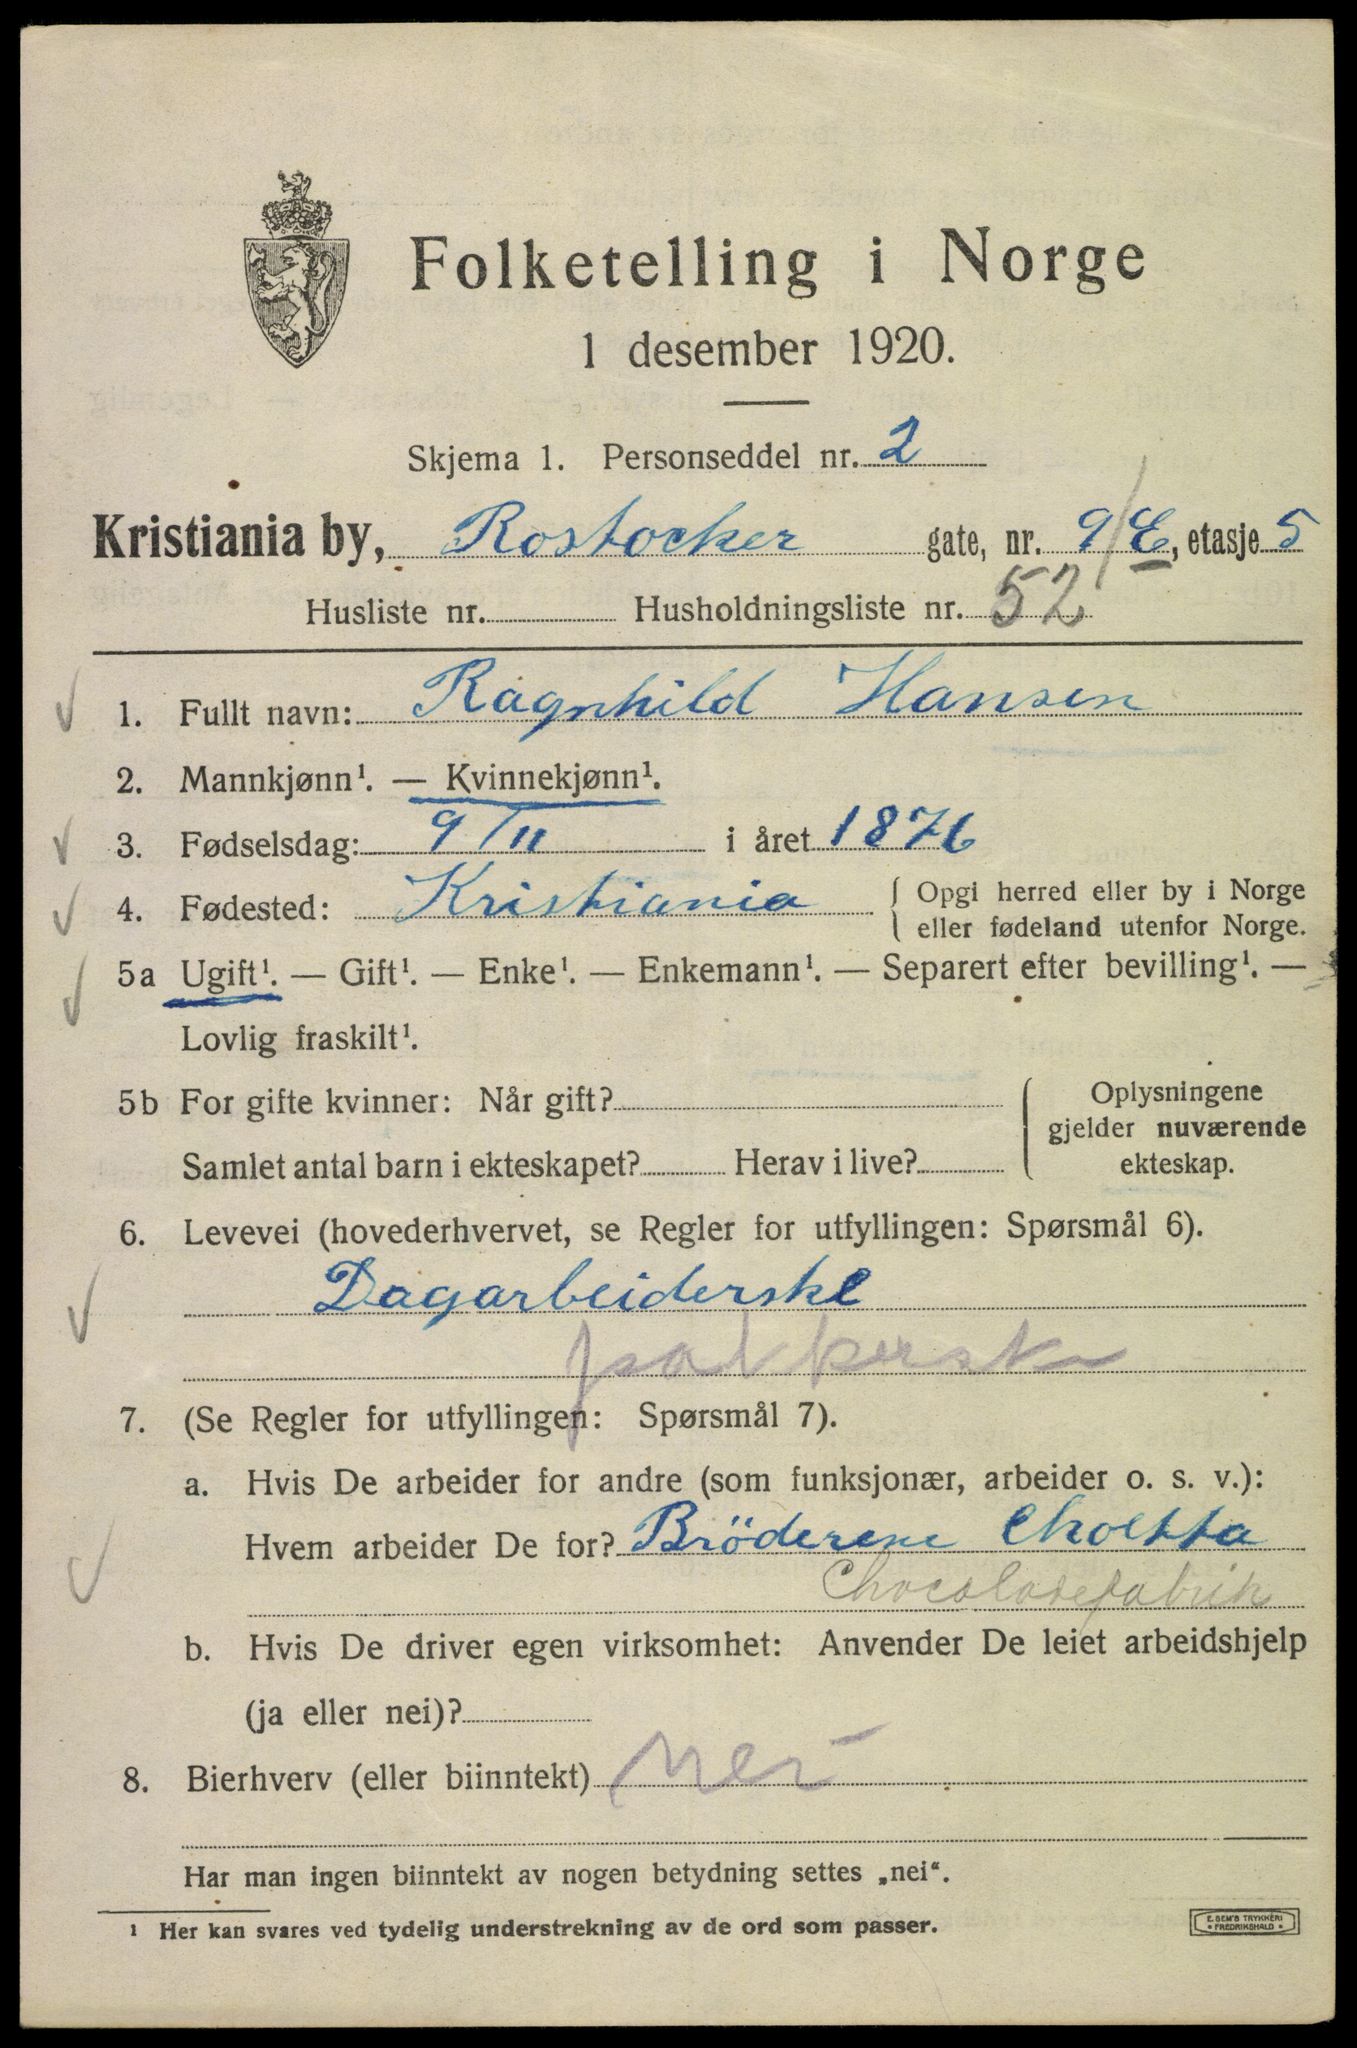 Folketelling i Norge
1 desember 1920.
Skjema 1. Personseddel nr. 2
Kristiania by, Rostocker gate, nr. 9/E, etasje 5
Husliste nr. Husholdningsliste nr. 52
1. Fullt navn: Ragnhild Hansen
2. Mannkjønn¹. — Kvinnekjønn¹.
3. Fødselsdag: 9/11 i året 1876
4. Fødested: Kristiania { Opgi herred eller by i Norge
eller fødeland utenfor Norge.
5a Ugift¹. — Gift¹. — Enke¹. — Enkemann¹. — Separert efter bevilling¹. —
Lovlig fraskilt¹.
5b For gifte kvinner: Når gift?
Samlet antal barn i ekteskapet? Herav i live?
Oplysningene
gjelder nuværende
ekteskap.
6. Levevei (hovederhvervet, se Regler for utfyllingen: Spørsmål 6).
Dagarbeiderske
pakkerske
7. (Se Regler for utfyllingen: Spørsmål 7).
a. Hvis De arbeider for andre (som funksjonær, arbeider o. s. v.):
Hvem arbeider De for? Bröderene
Chocoladefabrik
b. Hvis De driver egen virksomhet: Anvender De leiet arbeidshjelp
(ja eller nei)?
8. Bierhverv (eller biinntekt) nei
Har man ingen biinntekt av nogen betydning settes „nei“.
¹ Her kan svares ved tydelig understrekning av de ord som passer.
E. SEM'S TRYKKERI
• FREDRIKSHALD •